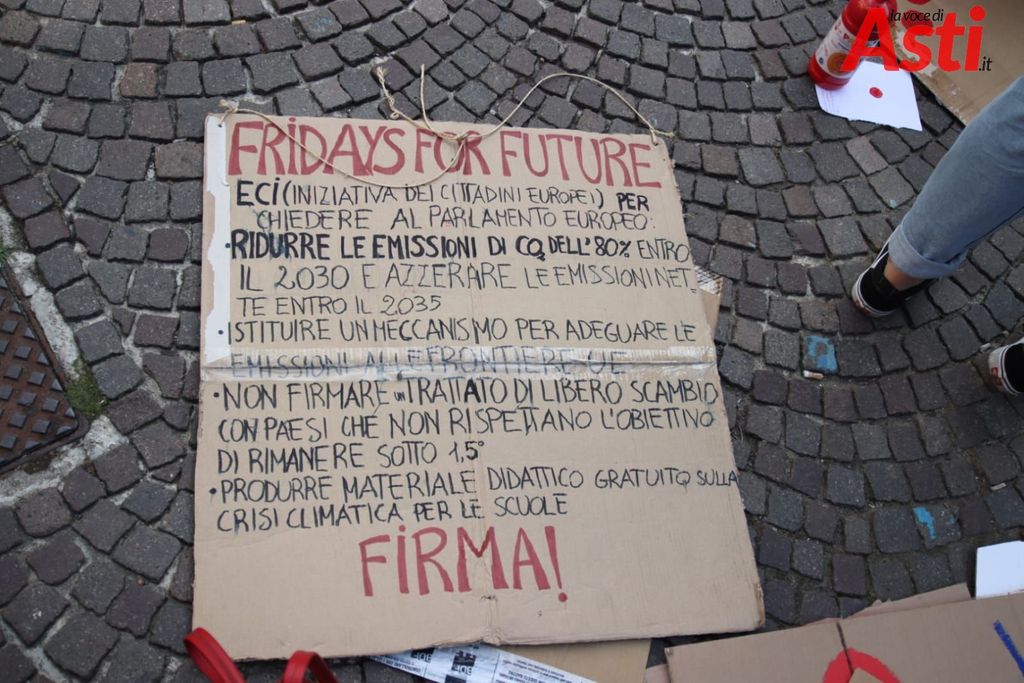 la voce di
Asti.it
FRIDAYS FOR FUTURE
ECI (INIZIATIVA DEI CITTADINI EUROPEI) PER
CHIEDERE AL PARLAMENTO EUROPEO:
•RIDURRE LE EMISSIONI DI CO2 DELL'80% ENTRO
IL 2030 E AZZERARE LE EMISSIONI NET
TE ENTRO IL 2035
•ISTITUIRE UN MECCANISMO PER ADEGUARE LE
EMISSIONI ALLE FRONTIERE UE
•NON FIRMARE un TRATTATO DI LIBERO SCAMBIO
CON PAESI CHE NON RISPETTANO L'OBIETTIVO
DI RIMANERE SOTTO 1,5°
•PRODURRE MATERIALE DIDATTICO GRATUITO SULLA
CRISI CLIMATICA PER LE SCUOLE
FIRMA!